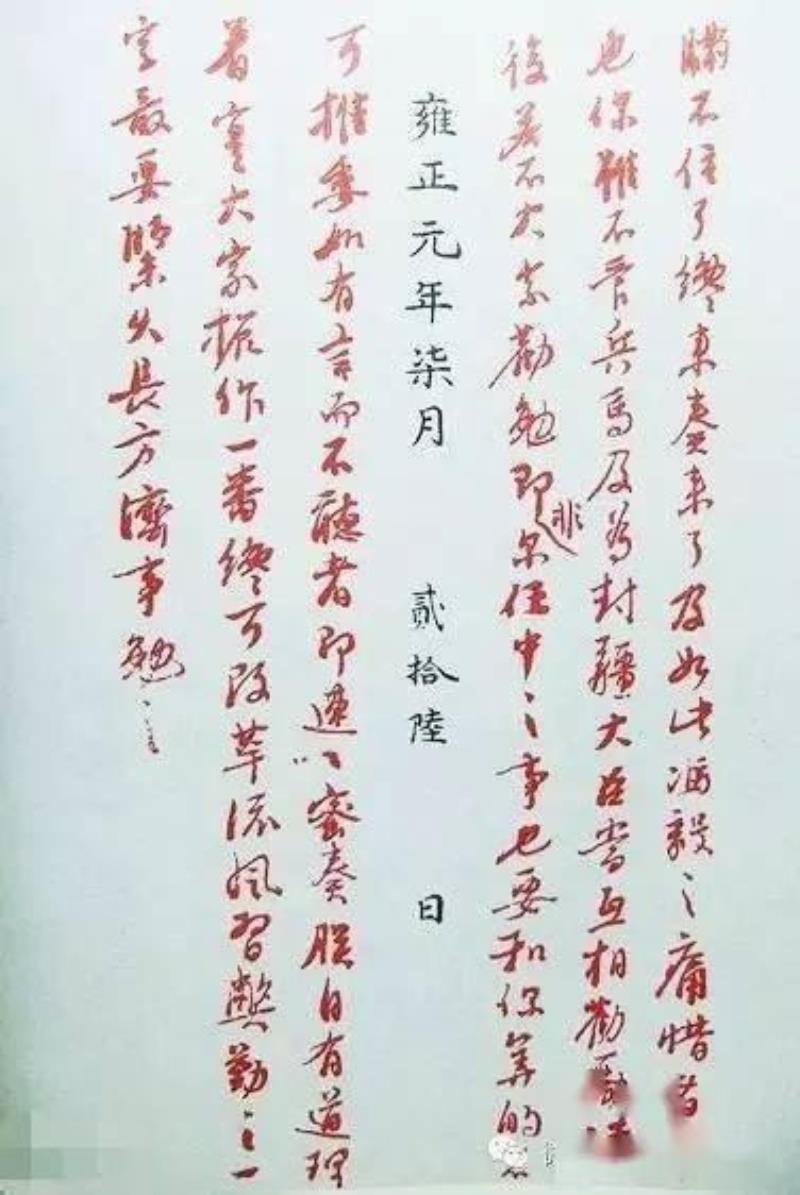 瞞不住了纔來奏來了及如此馮毅之痛惜
也你雖不管兵馬及為封疆大臣當互相勸
後若不大家勸勉即非尔任中之事也要和你算的
雍正元年柒月 貳拾陸 日
可推委如有言而不聽者即速以密奏朕自有道理
着實大家振作一番纔可改革流風習弊勤之一
字最要緊久長方濟事勉之